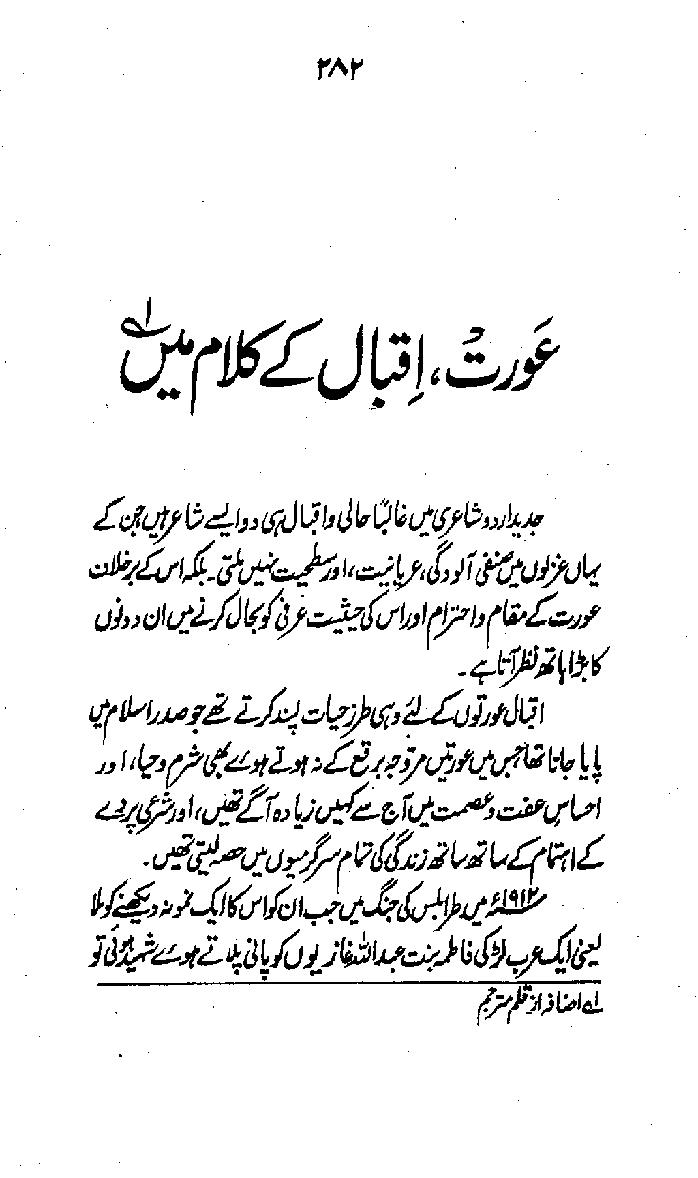 ۲۸۲
عورت، اِقبال کے کلام میں ؎۱
جدید اردو شاعری میں غالباً حالی و اقبال ہی دو ایسے شاعر ہیں جن کے
یہاں غزلوں میں صنفی آلودگی، عریانیت، اور سطحیت نہیں ملتی۔ بلکہ اس کے برخلاف
عورت کے مقام و احترام اور اس کی حیثیت عرفی کو بحال کرنے میں ان دونوں
کا بڑا ہاتھ نظر آتا ہے۔
اقبال عورتوں کے لئے وہی طرز حیات پسند کرتے تھے جو صدر اسلام میں
پایا جاتا تھا جس میں عورتیں مروّجہ برقع کے نہ ہوتے ہوے بھی شرم و حیا، اور
احساس عفت و عصمت میں آج سے کہیں زیادہ آگے تھیں، اور شرعی پردے
کے اہتمام کے ساتھ ساتھ زندگی کی تمام سرگرمیوں میں حصہ لیتی تھیں۔
۱۹۱۲ء میں طرابلس کی جنگ میں جب ان کو اس کا ایک نمونہ دیکھنے کو ملا
یعنی ایک عرب لڑکی فاطمہ بنت عبداللہ غازیوں کو پانی پلاتے ہوے شہید ہوئی تو
؎۱ اضافہ از قلم مترجم